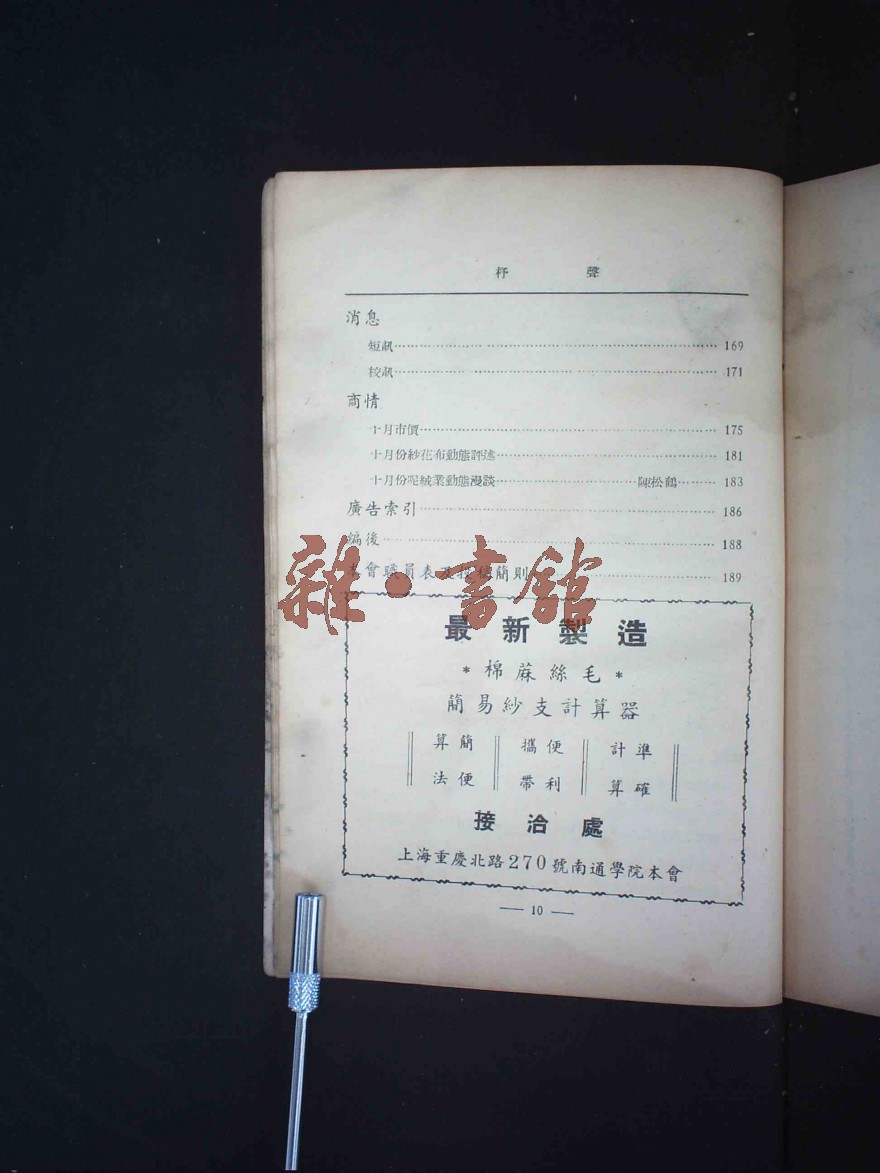 杼聲
消息
短訊 169
校訊 171
商情
十月市價 175
十月份紗花布動態評述 181
十月份呢絨業動態漫談 陳松鶴 183
廣告索引 186
編後 188
本會職員表及投稿簡則 189
雜·書館
最新製造
*棉蔴絲毛*
簡易紗支計算器
算簡 攜便 計準
法便 帶利 算確
接洽處
上海重慶北路270號南通學院本會
— 10 —